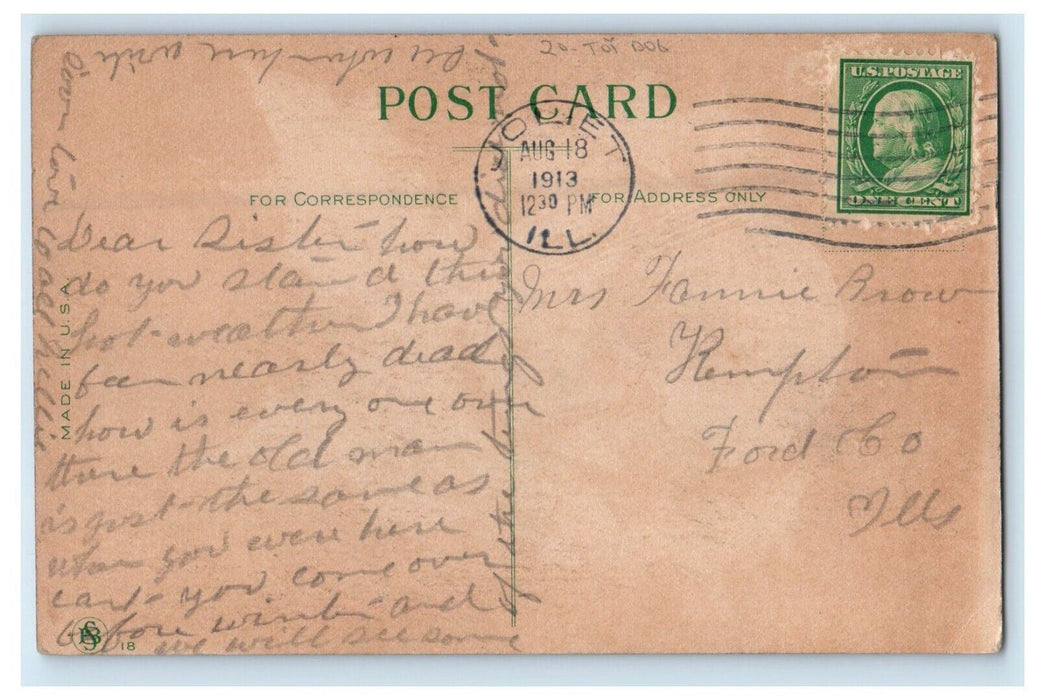 20-TOT DOG
POST CARD
U.S. POSTAGE
ONE CENT
JOLIET
AUG 18
1913
12 30 PM
ILL.
FOR CORRESPONDENCE
FOR ADDRESS ONLY
MADE IN U.S.A.
Dear Sister how
do you stand this
hot weather I have
been nearly dead
how is every one over
there the old man
is just the same as
when you were here
cant you come over
before winter and
we will see some
of the
write
love to all
Mrs Fannie Brown
Kempton
Ford Co
Ills
ASB
18